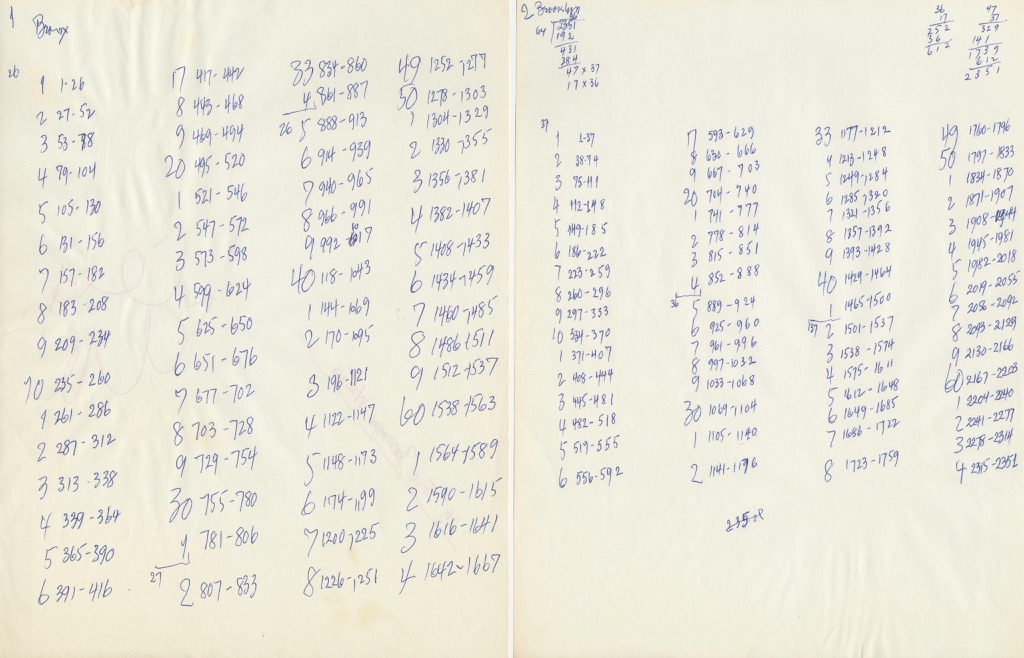 1
Bronx
26
1 1-26
2 27-52
3 53-78
4 79-104
5 105-130
6 131-156
7 157-182
8 183-208
9 209-234
10 235-260
1 261-286
2 287-312
3 313-338
4 339-364
5 365-390
6 391-416
17 417-442
8 443-468
9 469-494
20 495-520
1 521-546
2 547-572
3 573-598
4 599-624
5 625-650
6 651-676
7 677-702
8 703-728
9 729-754
30 755-780
1 781-806
27
2 807-833
33 834-860
4 861-887
26
5 888-913
6 914-939
7 940-965
8 966-991
9 992-1017
40 1018-1043
1 1044-1069
2 1070-1095
3 1096-1121
4 1122-1147
5 1148-1173
6 1174-1199
7 1200-1225
8 1226-1251
49 1252-1277
50 1278-1303
1 1304-1329
2 1330-1355
3 1356-1381
4 1382-1407
5 1408-1433
6 1434-1459
7 1460-1485
8 1486-1511
9 1512-1537
60 1538-1563
1 1564-1589
2 1590-1615
3 1616-1641
4 1642-1667
2 Brooklyn
36
64 2351
192
431
384
47 x 37
17 x 36
36
17
252
36
612
47
37
329
141
1739
612
2351
37
1 1-37
2 38-74
3 75-111
4 112-148
5 149-185
6 186-222
7 223-259
8 260-296
9 297-333
10 334-370
1 371-407
2 408-444
3 445-481
4 482-518
5 519-555
6 556-592
17 593-629
8 630-666
9 667-703
20 704-740
1 741-777
2 778-814
3 815-851
4 852-888
36
5 889-924
6 925-960
7 961-996
8 997-1032
9 1033-1068
30 1069-1104
1 1105-1140
2 1141-1176
33 1177-1212
4 1213-1248
5 1249-1284
6 1285-1320
7 1321-1356
8 1357-1392
9 1393-1428
40 1429-1464
1 1465-1500
137
2 1501-1537
3 1538-1574
4 1575-1611
5 1612-1648
6 1649-1685
7 1686-1722
8 1723-1759
49 1760-1796
50 1797-1833
1 1834-1870
2 1871-1907
3 1908-1944
4 1945-1981
5 1982-2018
6 2019-2055
7 2056-2092
8 2093-2129
9 2130-2166
60 2167-2203
1 2204-2240
2 2241-2277
3 2278-2314
4 2315-2351